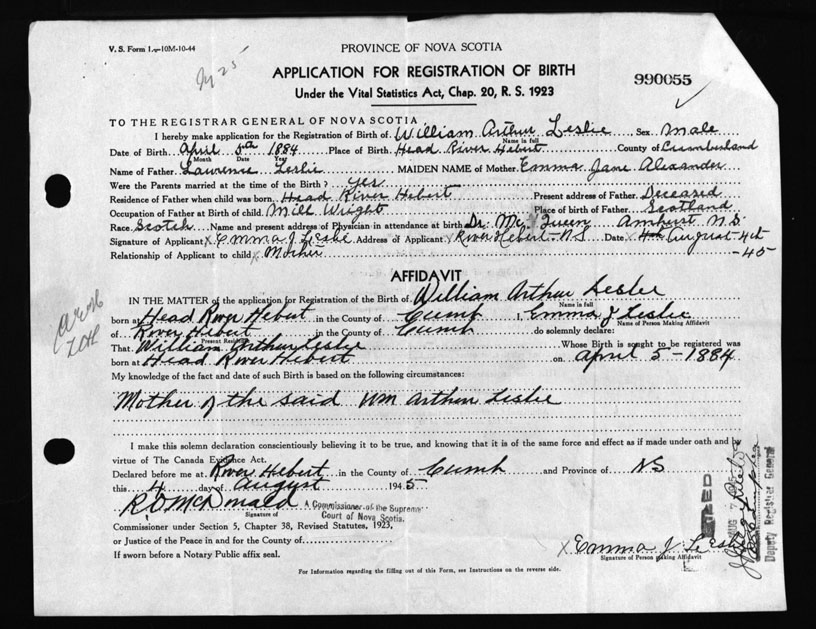 V. S. Form 1.-10M-10-44
PROVINCE OF NOVA SCOTIA
APPLICATION FOR REGISTRATION OF BIRTH
990055
Under the Vital Statistics Act, Chap. 20, R. S. 1923
TO THE REGISTRAR GENERAL OF NOVA SCOTIA
I hereby make application for the Registration of Birth of William Arthur Leslie Sex Male
Name in full
Date of Birth April 5th 1884 Place of Birth Head River Hebert County of Cumberland
Month Date Year
Name of Father Lawrence Leslie MAIDEN NAME of Mother Emma Jane Alexander
Were the Parents married at the time of the Birth? yes
Residence of Father when child was born Head River Hebert Present address of Father Deceased
Occupation of Father at Birth of child Mill Wright Place of birth of Father Scotland
Race Scotch Name and present address of Physician in attendance at birth Dr. Mc Amherst N.S.
Signature of Applicant X Emma J Leslie Address of Applicant X River Hebert N.S Date X 4th August 4th
Relationship of Applicant to child X Mother -45
AFFIDAVIT
IN THE MATTER of the application for Registration of the Birth of William Arthur Leslie
Name in full
born at Head River Hebert in the County of Cumb I, Emma J Leslie
Name of Person Making Affidavit
of River Hebert in the County of Cumb do solemnly declare:
Present Residence
That William Arthur Leslie Whose Birth is sought to be registered was
born at Head River Hebert on April 5-1884
My knowledge of the fact and date of such Birth is based on the following circumstances:
Mother of the said Wm Arthur Leslie
I make this solemn declaration conscientiously believing it to be true, and knowing that it is of the same force and effect as if made under oath and by
virtue of The Canada Evidence Act.
Declared before me at River Hebert in the County of Cumb and Province of NS
this 4 day of August 1945
R.O McDonald A Commissioner of the Supreme
Signature of Court of Nova Scotia.
Commissioner under Section 5, Chapter 38, Revised Statutes, 1923,
or Justice of the Peace in and for the County of
If sworn before a Notary Public affix seal.
X Emma J Leslie
Signature of Person Making Affidavit
AUG 7
Deputy Registrar General
For Information regarding the filling out of this Form, see Instructions on the reverse side.